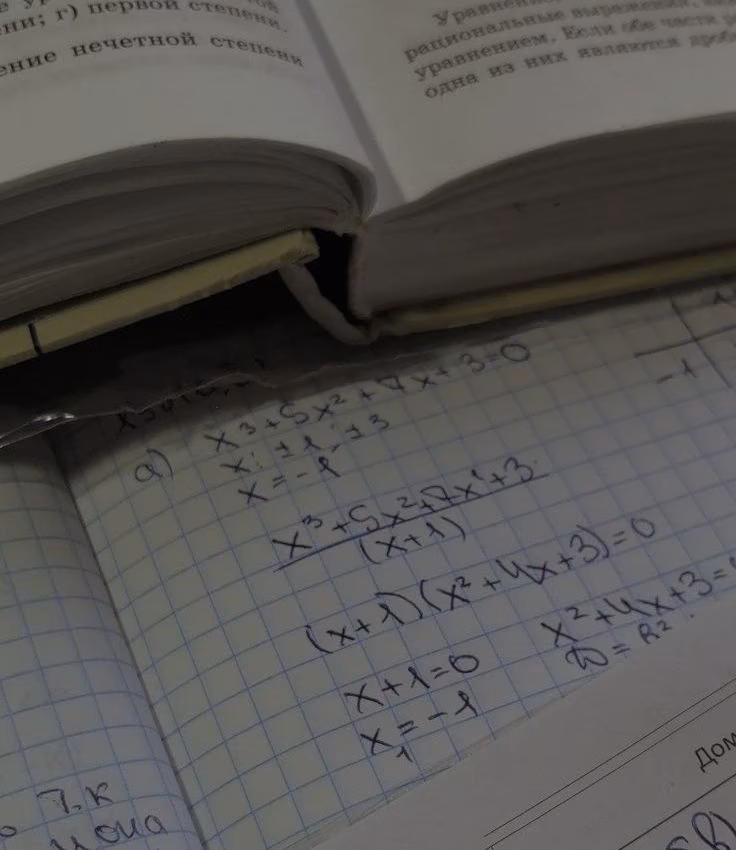 ени; г) первой степени.
ение нечетной степени
Уравнен
рациональные выражения,
уравнением. Если обе части
одна из них являются дроб
-1
а) x³+5x²+7x+3=0
x: ±1; ±3
x=-1
x³+5x²+7x+3
(x+1)
(x+1)(x²+4x+3)=0
x+1=0
x₁=-1
x²+4x+3=
Т.К
она
Дом